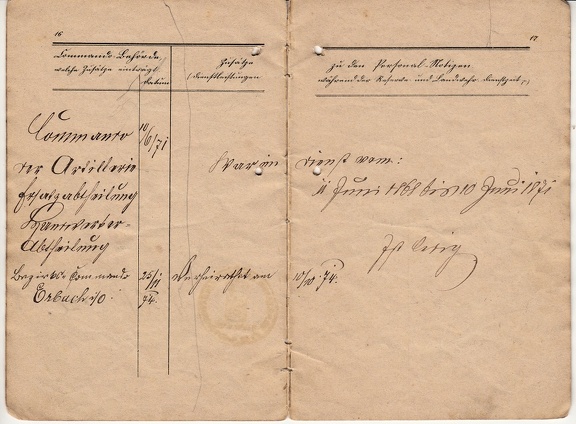 16
Commando-Behörde,
welche Zusätze einträgt.
Datum
Zusätze
(Dienstleistungen
Commando
der Artillerie
Ersatzabtheilung
Handwerker-
Abtheilung
10/6/71
War im
Bezirks-Commando
Erbach i/O.
25/11 74.
Verheirathet am
17
zu den Personal-Notizen
während der Reserve- und Landwehr-Dienstzeit,)
Dienst vom:
11 Juni 1868 bis 10 Juni 1871
Ist
10/10 74.